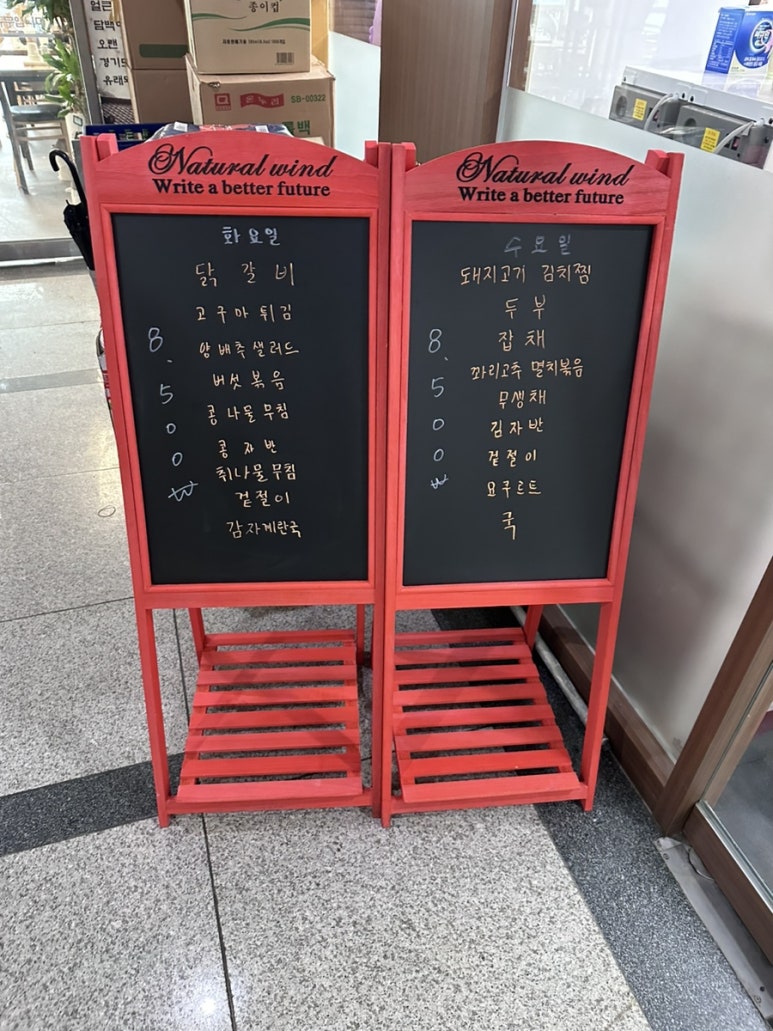 종이컵
SB-00322
Natural wind
Write a better future
화요일
닭갈비
고구마튀김
양배추샐러드
버섯볶음
콩나물무침
콩자반
취나물무침
겉절이
감자계란국
8.500₩
Natural wind
Write a better future
수요일
돼지고기 김치찜
두부
잡채
꽈리고추 멸치볶음
무생채
김자반
겉절이
요구르트
국
8.500₩